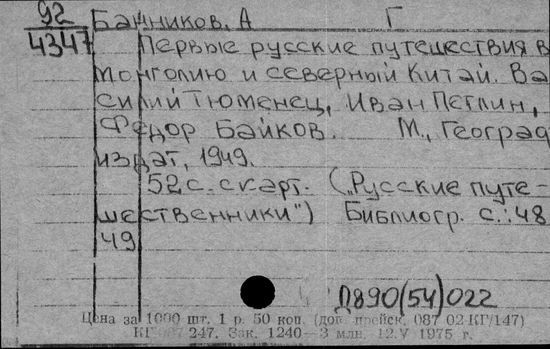 92 Банников, А Г
4347 Первые русские путешествия в
Монголию и северный Китай. Ва
силий Тюменец, Иван Петлин,
Федор Байков. М., Географ
издат, 1949.
52 с. с карт. („Русские путе-
шественники") Библиогр. с.: 48
49
Д890(54)022
Цена за 1000 шт. 1 р. 50 коп. (доп. прейск. 087 02 КГ/147)
КГ 247. Зак. 1240—3 млн. 12.V 1975 г.